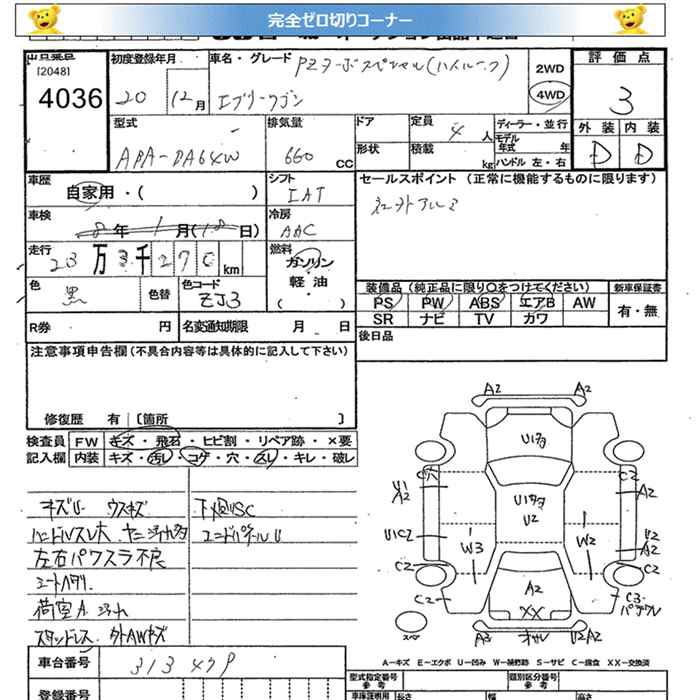 完全ゼロ切りコーナー
出品番号 初度登録年月 車名・グレード PZターボスペシャル(ハイルーフ) 2WD 評価点
[2048]
4036 20年 12月 エブリーワゴン 4WD 3
型式 排気量 ドア 定員 4人 ディーラー・並行 外装 内装
モデル年式 年
ABA-DA64W 660cc 形状 積載 kg ハンドル 左・右 D D
車歴 シフト セールスポイント (正常に機能するものに限ります)
自家用・( ) IAT
車検 冷房 社外アルミ
8年1月(18日) AAC
走行 燃料
23万3千270km ガソリン
軽・油
・( )
色 色替 色コード 装備品(純正品に限り○をつけてください) 新車保証書
黒 ZJ3 PS PW ABS エアB AW 有・無
SR ナビ TV カワ
R券 円 名変通知期限 月 日 後日品
注意事項申告欄(不具合内容等は具体的に記入して下さい)
修復歴 有 [箇所 ]
検査員 FW キズ・飛石・ヒビ割・リペア跡・×要
記入欄 内装 キズ・汚レ・コゲ・穴・スレ・キレ・破レ
キズU ウスキズ 下廻りSC
ハンドルスレ大 エンドパネルU
左右パワスラ不良
シートヘタリ
荷室A
スタッドレス 外AWキズ
A2 A2
U1多
C穴 C2
U1 A2 A2
U1多
U2
U1C2 U2 A2
W3 W2
C2 C2
A2
C2 XX C3
スペア A3 U2A2
A-キズ E-エクボ U-凹み W-補修跡 S-サビ C-腐食 XX-交換済
車台番号 313479
型式指定番号 参考 類別区分番号 参考
登録番号 長さ 幅 高さ